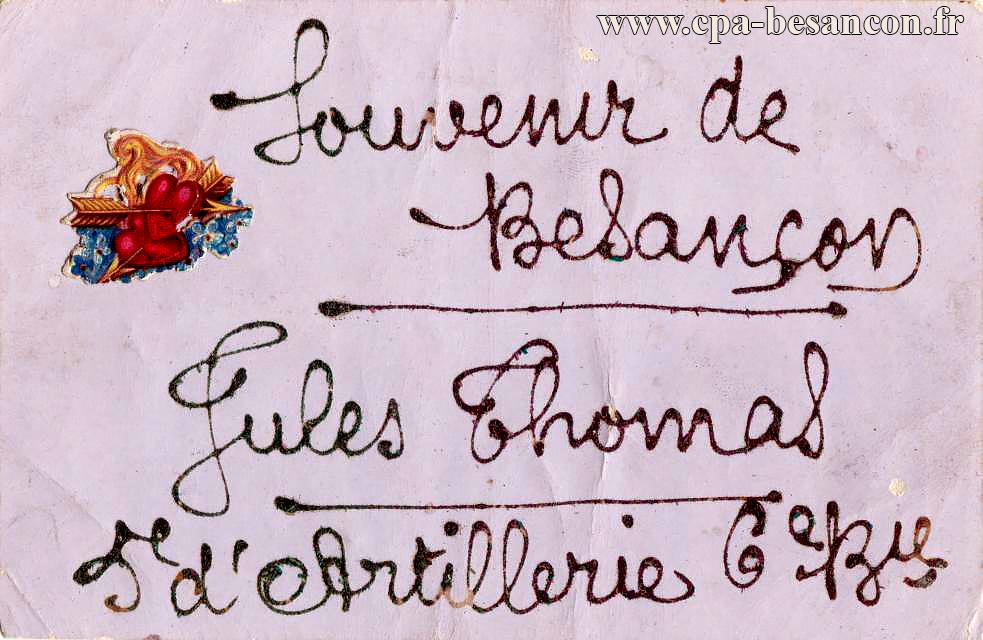 www.cpa-besancon.fr
Souvenir de
Besançon
Jules Thomas
5e d'Artillerie 6e Brie